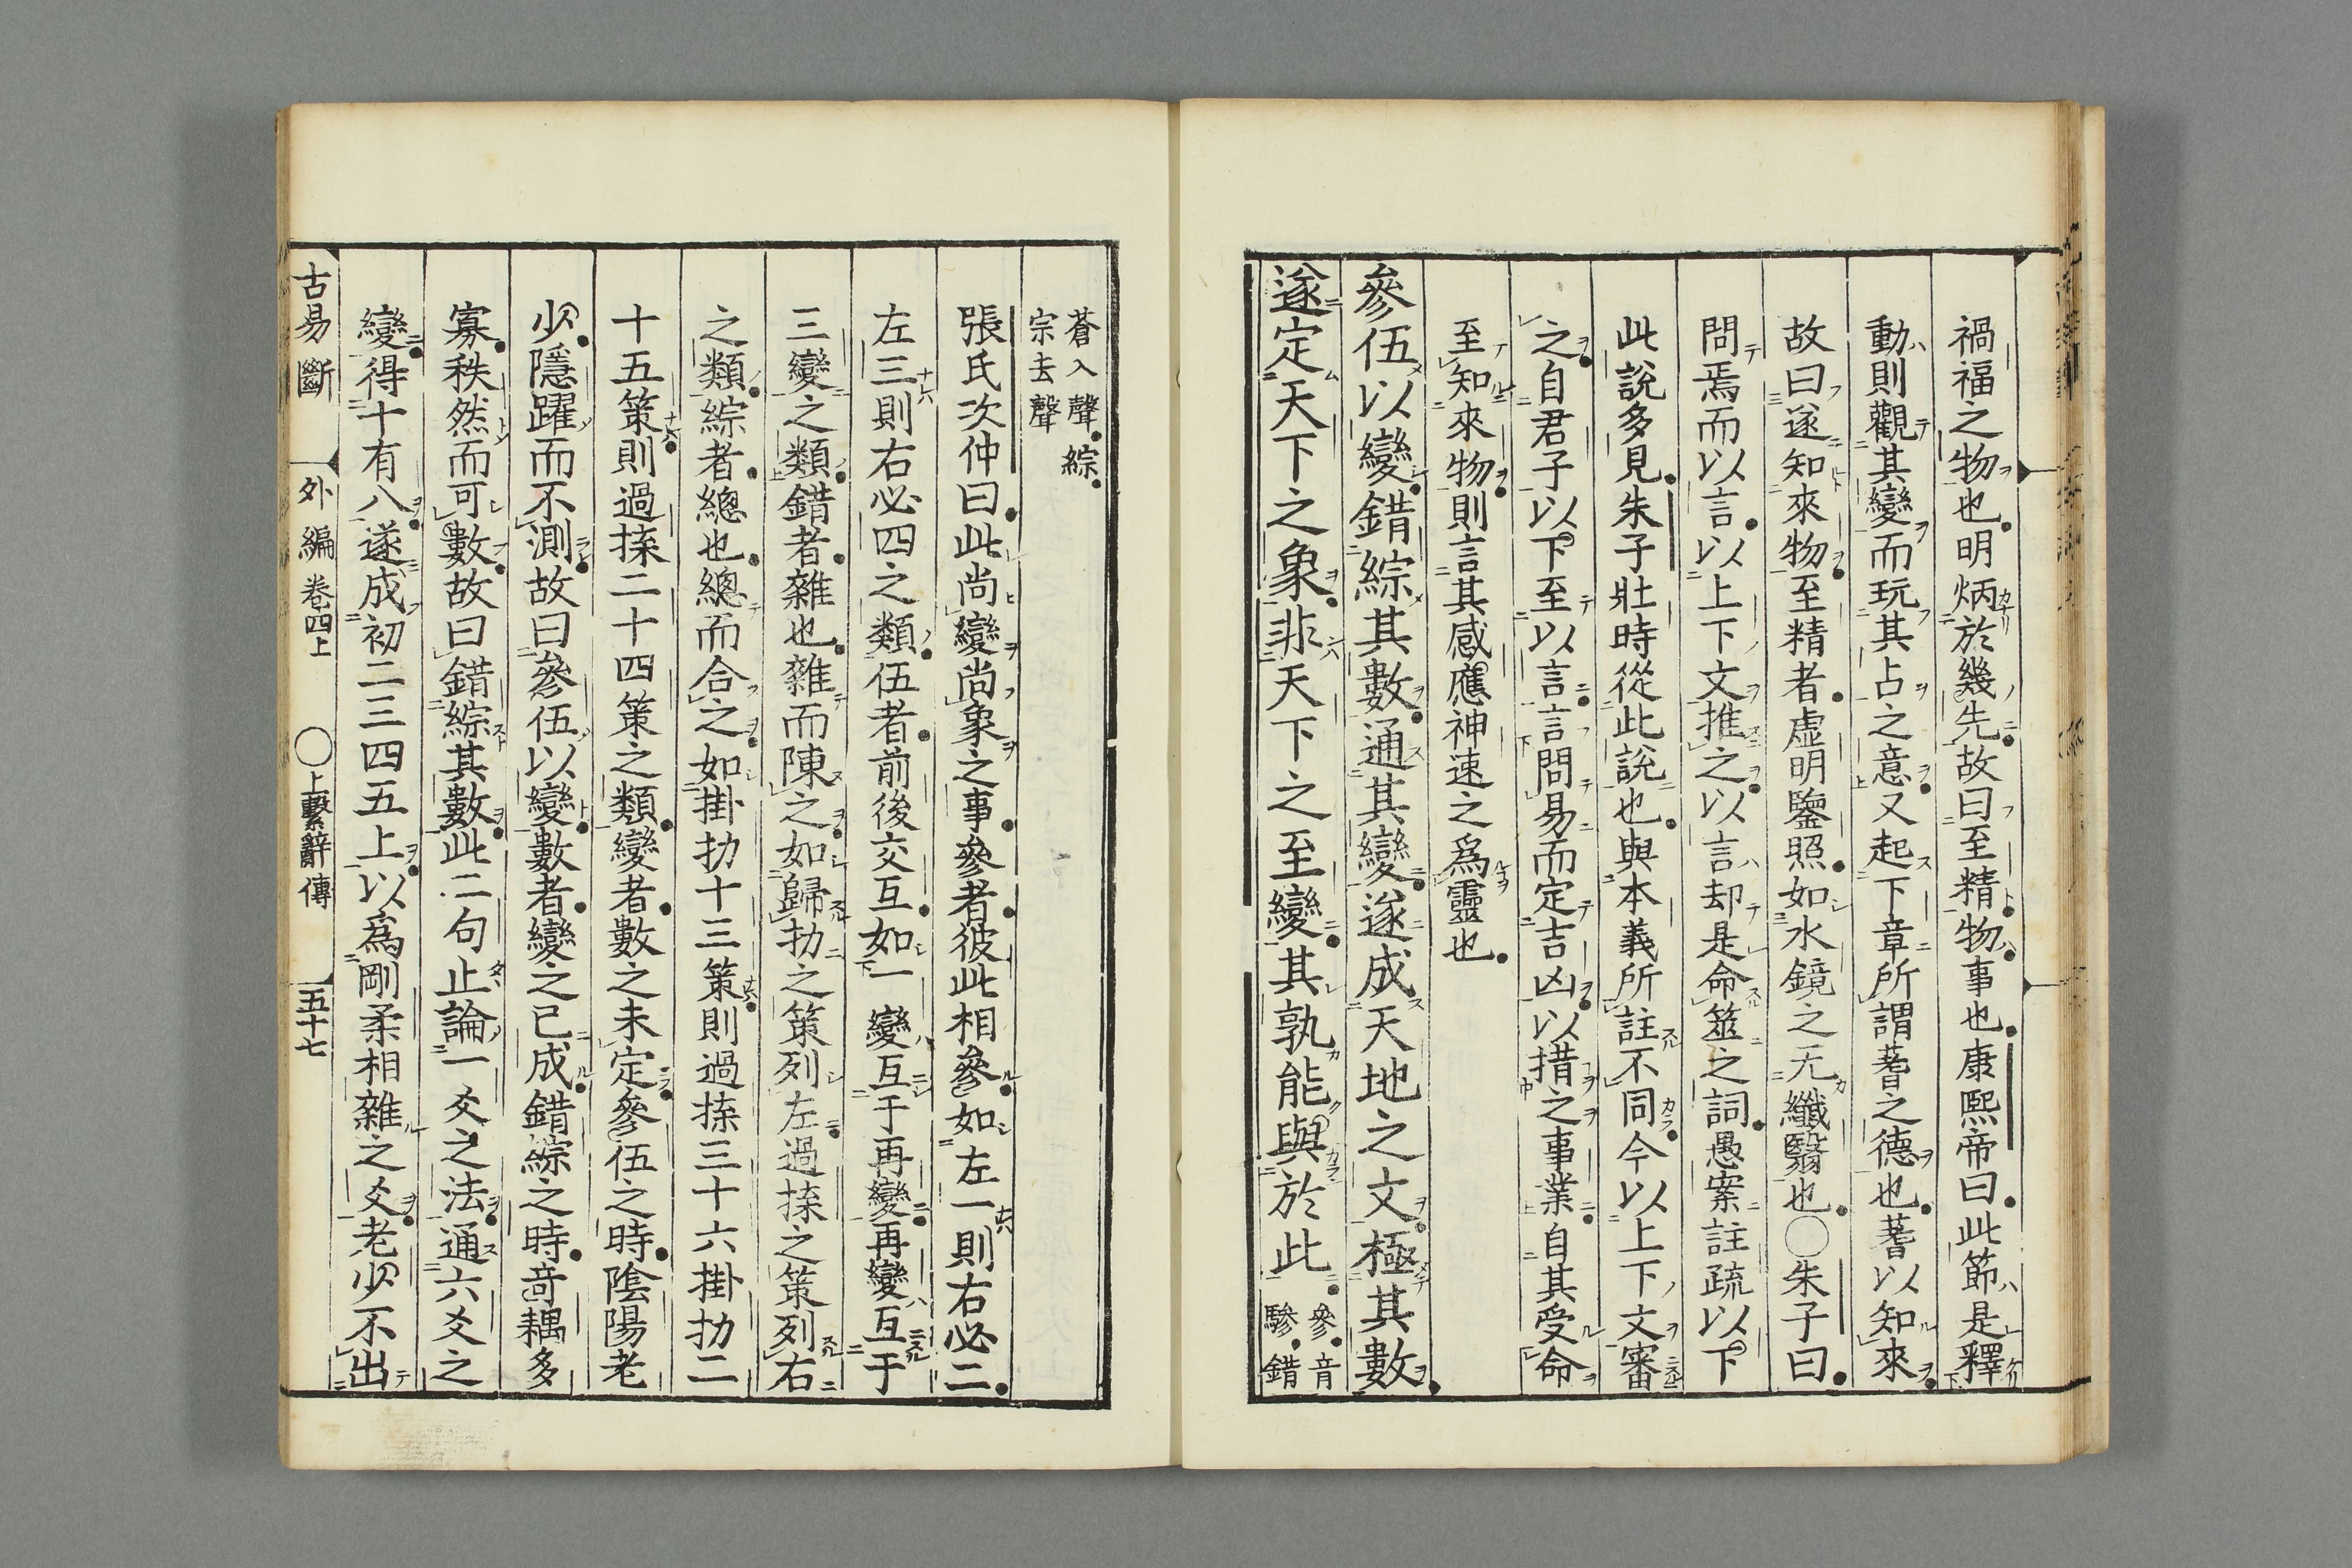 禍福之物也明炳於幾先故曰至精物事也康熙帝曰此節是釋
動則觀其變而玩其占之意又起下章所謂蓍之德也蓍以知來
故曰遂知來物至精者虛明鑒照如水鏡之无纖翳也○朱子曰
問焉而以言以上下文推之以言却是命筮之詞愚案註疏以下
此說多見朱子壯時從此說也與本義所註不同今以上下文審
之自君子以下至以言言問易而定吉凶以措之事業自其受命
至知來物則言其感應神速之爲靈也
參伍以變錯綜其數通其變遂成天地之文極其數
遂定天下之象非天下之至變其孰能與於此 參音
驂錯
蒼入聲綜
宗去聲
張氏次仲曰此尚變尚象之事參者彼此相參如左一則右必二
左三則右必四之類伍者前後交互如一變互于再變再變互于
三變之類錯者雜也雜而陳之如歸扐之策列左過揲之策列右
之類綜者總也總而合之如掛扐十三策則過揲三十六掛扐二
十五策則過揲二十四策之類變者數之未定參伍之時陰陽老
少隱躍而不測故曰參伍以變數者變之已成錯綜之時奇耦多
寡秩然而可數故曰錯綜其數此二句止論一爻之法通六爻之
變得十有八遂成初二三四五上以爲剛柔相雜之爻老少不出
古易斷 外編卷四上 ○上繫辭傳 五十七